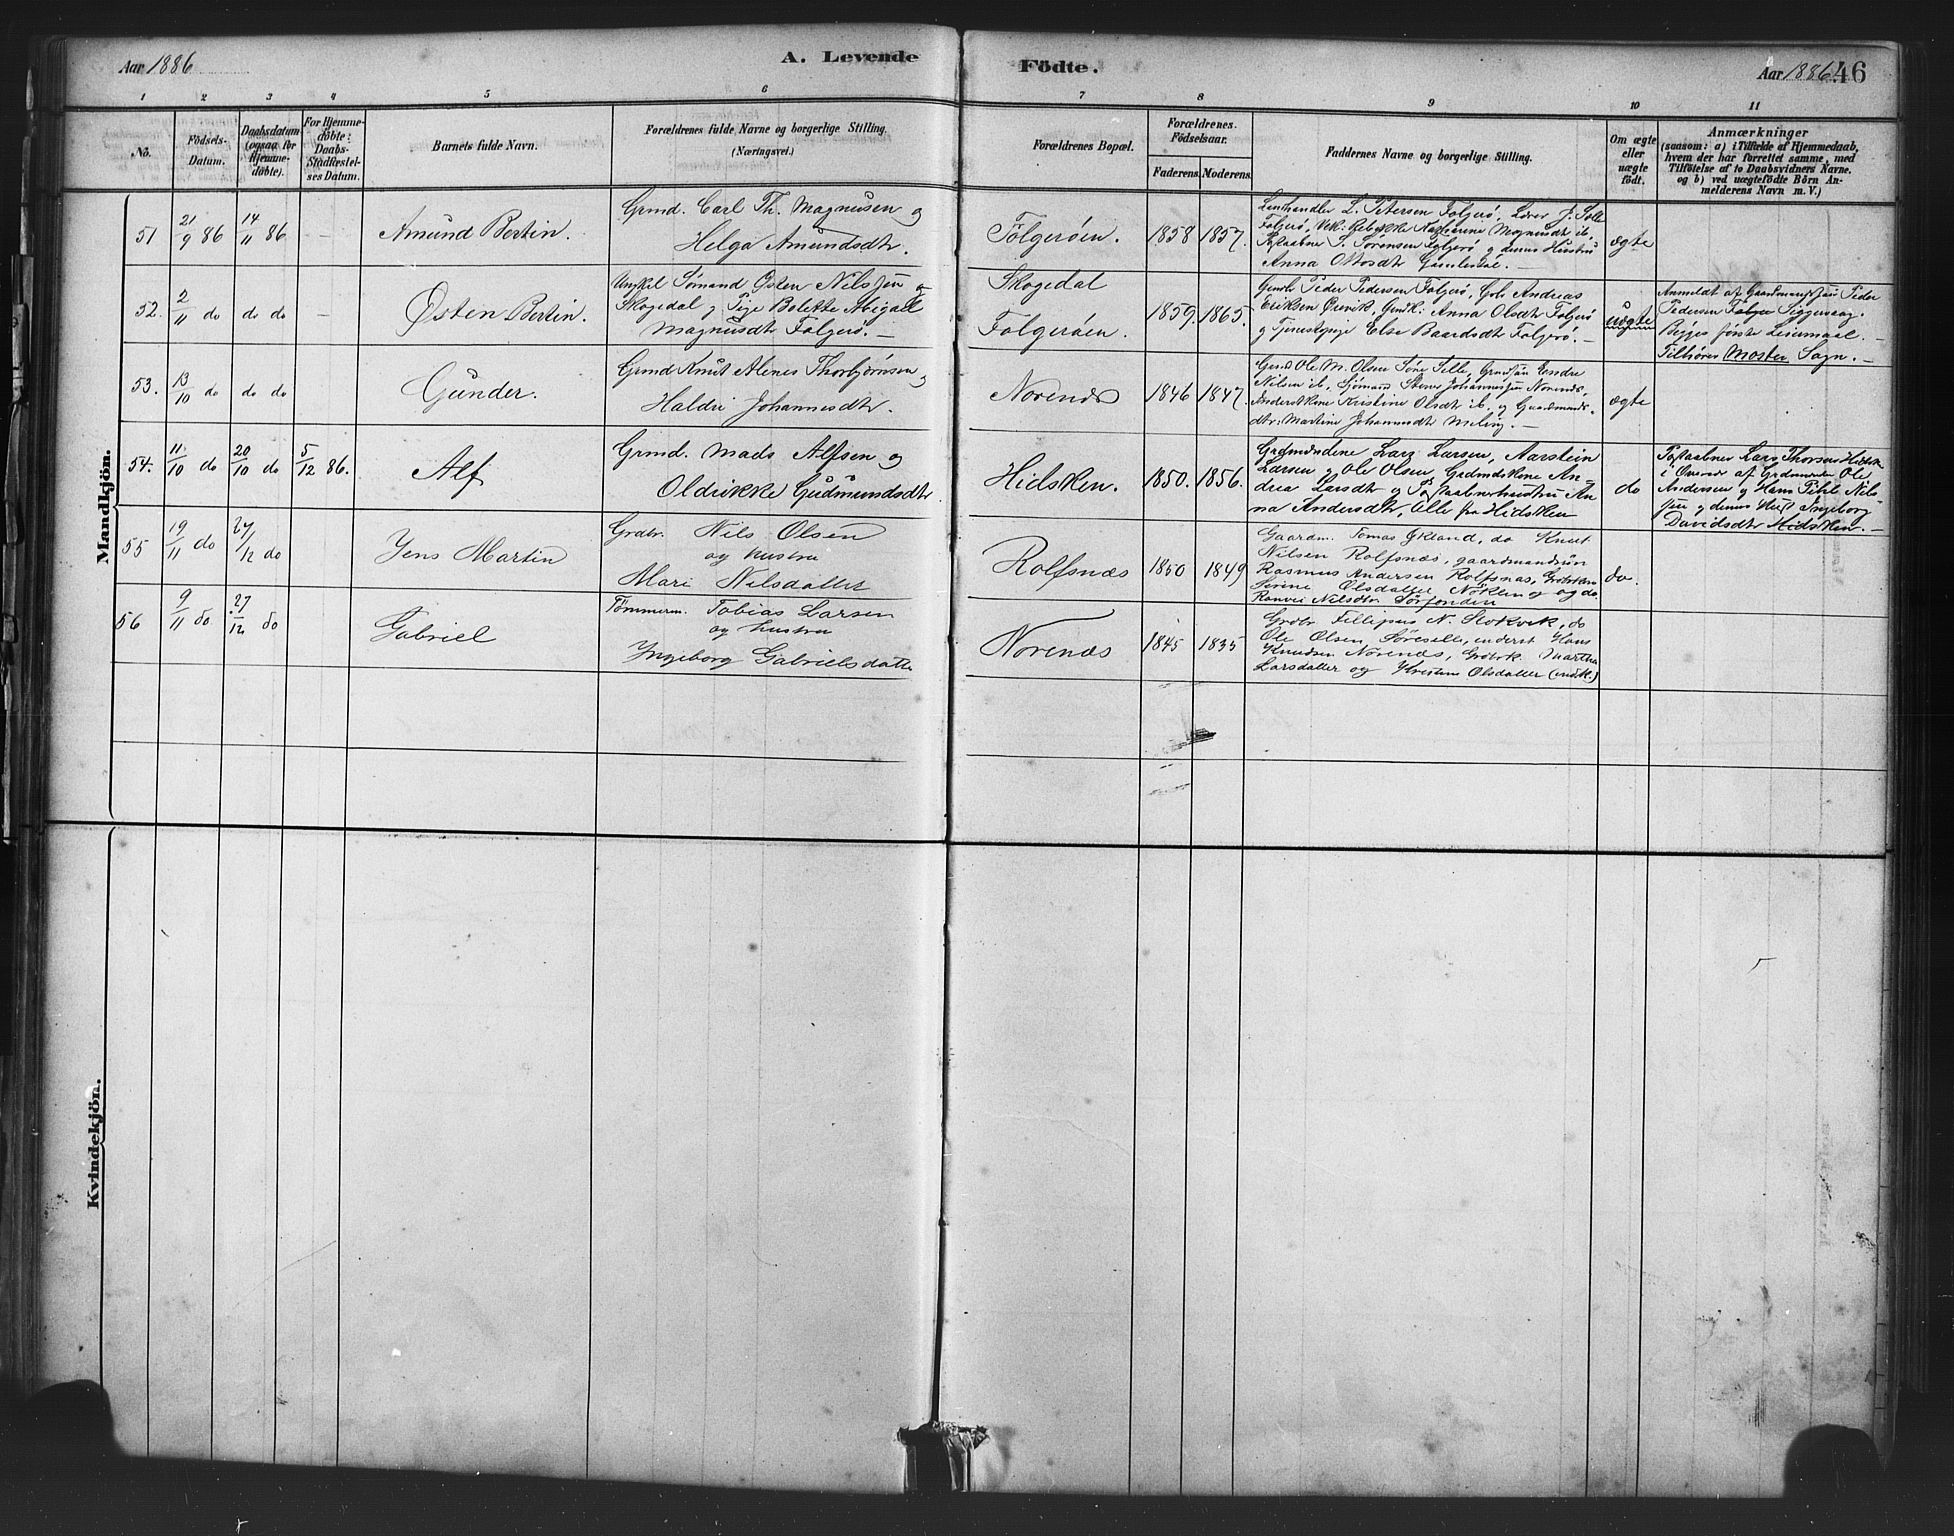 Aar 1886
A. Levende
Födte.
Aar 1886.
46
1 2 3 4 5 6 7 8 9 10 11
No.
Födsels-
Datum.
Daabsdatum
(ogsaa for
Hjemme-
döbte).
For Hjemme-
döbte:
Daabs-
Stadfæstel-
ses Datum.
Barnets fulde Navn.
Forældrenes fulde Navne og borgerlige Stilling.
(Næringsvei.)
Forældrenes Bopæl.
Forældrenes
Födselsaar.
Faderens. Moderens.
Faddernes Navne og borgerlige Stilling.
Om ægte
eller
uægte
födt.
Anmærkninger
(saasom: a) i Tilfælde af Hjemmedaab,
hvem der har forrettet samme, med
Tilföielse af to Daabsvidners Navne,
og b) ved uægtefödte Börn An-
melderens Navn m. V.)
Mandkjön.
51 21/9 86 14/11 86 — Amund Bertin.
Grmd. Carl Th. Magnusen og
Helga Amundsdtr.
Folgerøen. 1858 1857.
L. Petersen Folgerø, Lærer J.
Folgerø, Katharine Magnusdt ib,
S. Sørensen Folgerø og dennes Hustru
Anna Ottosdtr —
ægte
52. 2/11 do do do — Østen Bertin.
Ungkl Sømand Østen Nilssen
Skogedal og Pige Bolette Abigael
Magnusdtr Folgerø. —
Skogedal
Folgerøen. 1859. 1865.
Peder Pedersen Folgerø, Andreas
Eriksen Anna Olsdtr Folgerø
og Tjenestepige Else Baardsdtr Folgerø. —
uægte
Anmeldt af Peder
Pedersen Siggervaag.
Begges første Leiermaal. —
Tilhører Moster Sogn. —
53. 13/10 do do do Gunder.
Grmd Knut Thorbjørnsen og
Haldri Johannesdtr.
Norenes 1846 1847.
Ole M. Olsen Endre
Nilsen ib, Sømand Norenes,
Kristine Olsdtr ib. og Gaardmands-
dtr: Martine Johannesdtr Meling. —
ægte
54. 11/10 do 20/10 do 5/12 86. Alf
Grmd. Mads Alfsen og
Oldrikke Gudmundsdtr
Hidsken. 1850. 1856.
Gadmændene Lars Larsen, Aarstein
Larsen og Ole Olsen, Gadmdskone An-
drea Larsdtr og Postaabnerhustru An-
na Andersdtr, Alle fra Hidsken
do
Postaabner Lars Thorsen Hidsk
i Overvær af Gadmanden Ole
Andersen og Hans Nils-
sen og dennes Hust Ingeborg
Davidsdtr Hidsken. —
55 19/11 do 27/12 do Jens Martin
Grdbr. Nils Olsen
og hustru
Mari Nilsdatter
Rolfsnæs 1850 1849
Gaardm. Tomas Økland, do Knut
Nilsen Rolfsnæs, gaardmandssøn
Rasmus Andersen Rolfsnæs,
Serine Olsdatter og do
Nilsdtr
do.
56 9/11 do 27/12 do Gabriel
Tømmerm. Tobias Larsen
og hustru
Yngeborg Gabrielsdatter
Norenæs 1845 1835
Grdbr. Fillipus N. Stokvik, do
Ole Olsen ungkarl Hans
Knudsen Norenæs, Martha
Larsdatter og Olsdatter
Kvindekjön.